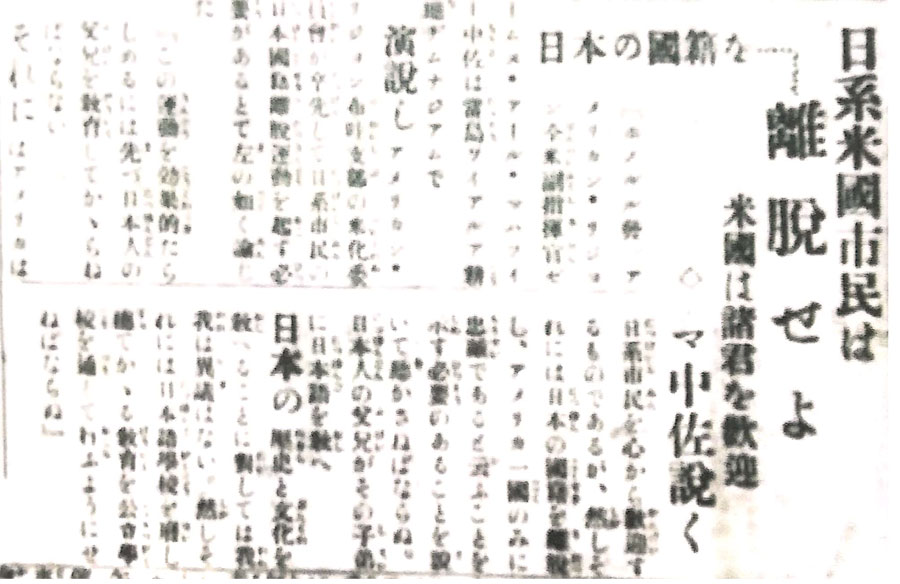 日系米國市民は
日本の國籍を……
離脱せよ
米國は諸君を歓迎
◇マ中佐說く
(ホノルル發)ア
メリカン・リジョ
ン今米副指揮官ゼ
ームス・アール・マハフイ
ー中佐は當島ワイアルア耕
ヂムナジアムで
演說し アメリカン・
リジョン布哇支部の米化委
員會が率先して日系市民の
日本國籍離脱運動を起す必
要があるとて左の如く論じ
た
「この運動を効果的たら
しめるには先づ日本人の
父兄を敎育してかゝらね
ばならない
それにはアメリカは
日系市民を心から歓迎す
るものであるが、然しそ
れには日本の國籍を離脱
し、アメリカ一國のみに
忠順でもると云ふことを
示す必要のあることを說
いて動かさねばならぬ。
日本人の父兄がその子弟
に日本語を敎へ
日本の 歷史と文化を
敎へることに對しては我
我は異議はない、然しそ
れには日本語學校を廢し
てかゝる敎育を公會學
校を通して行ふようにせ
ねばならぬ」